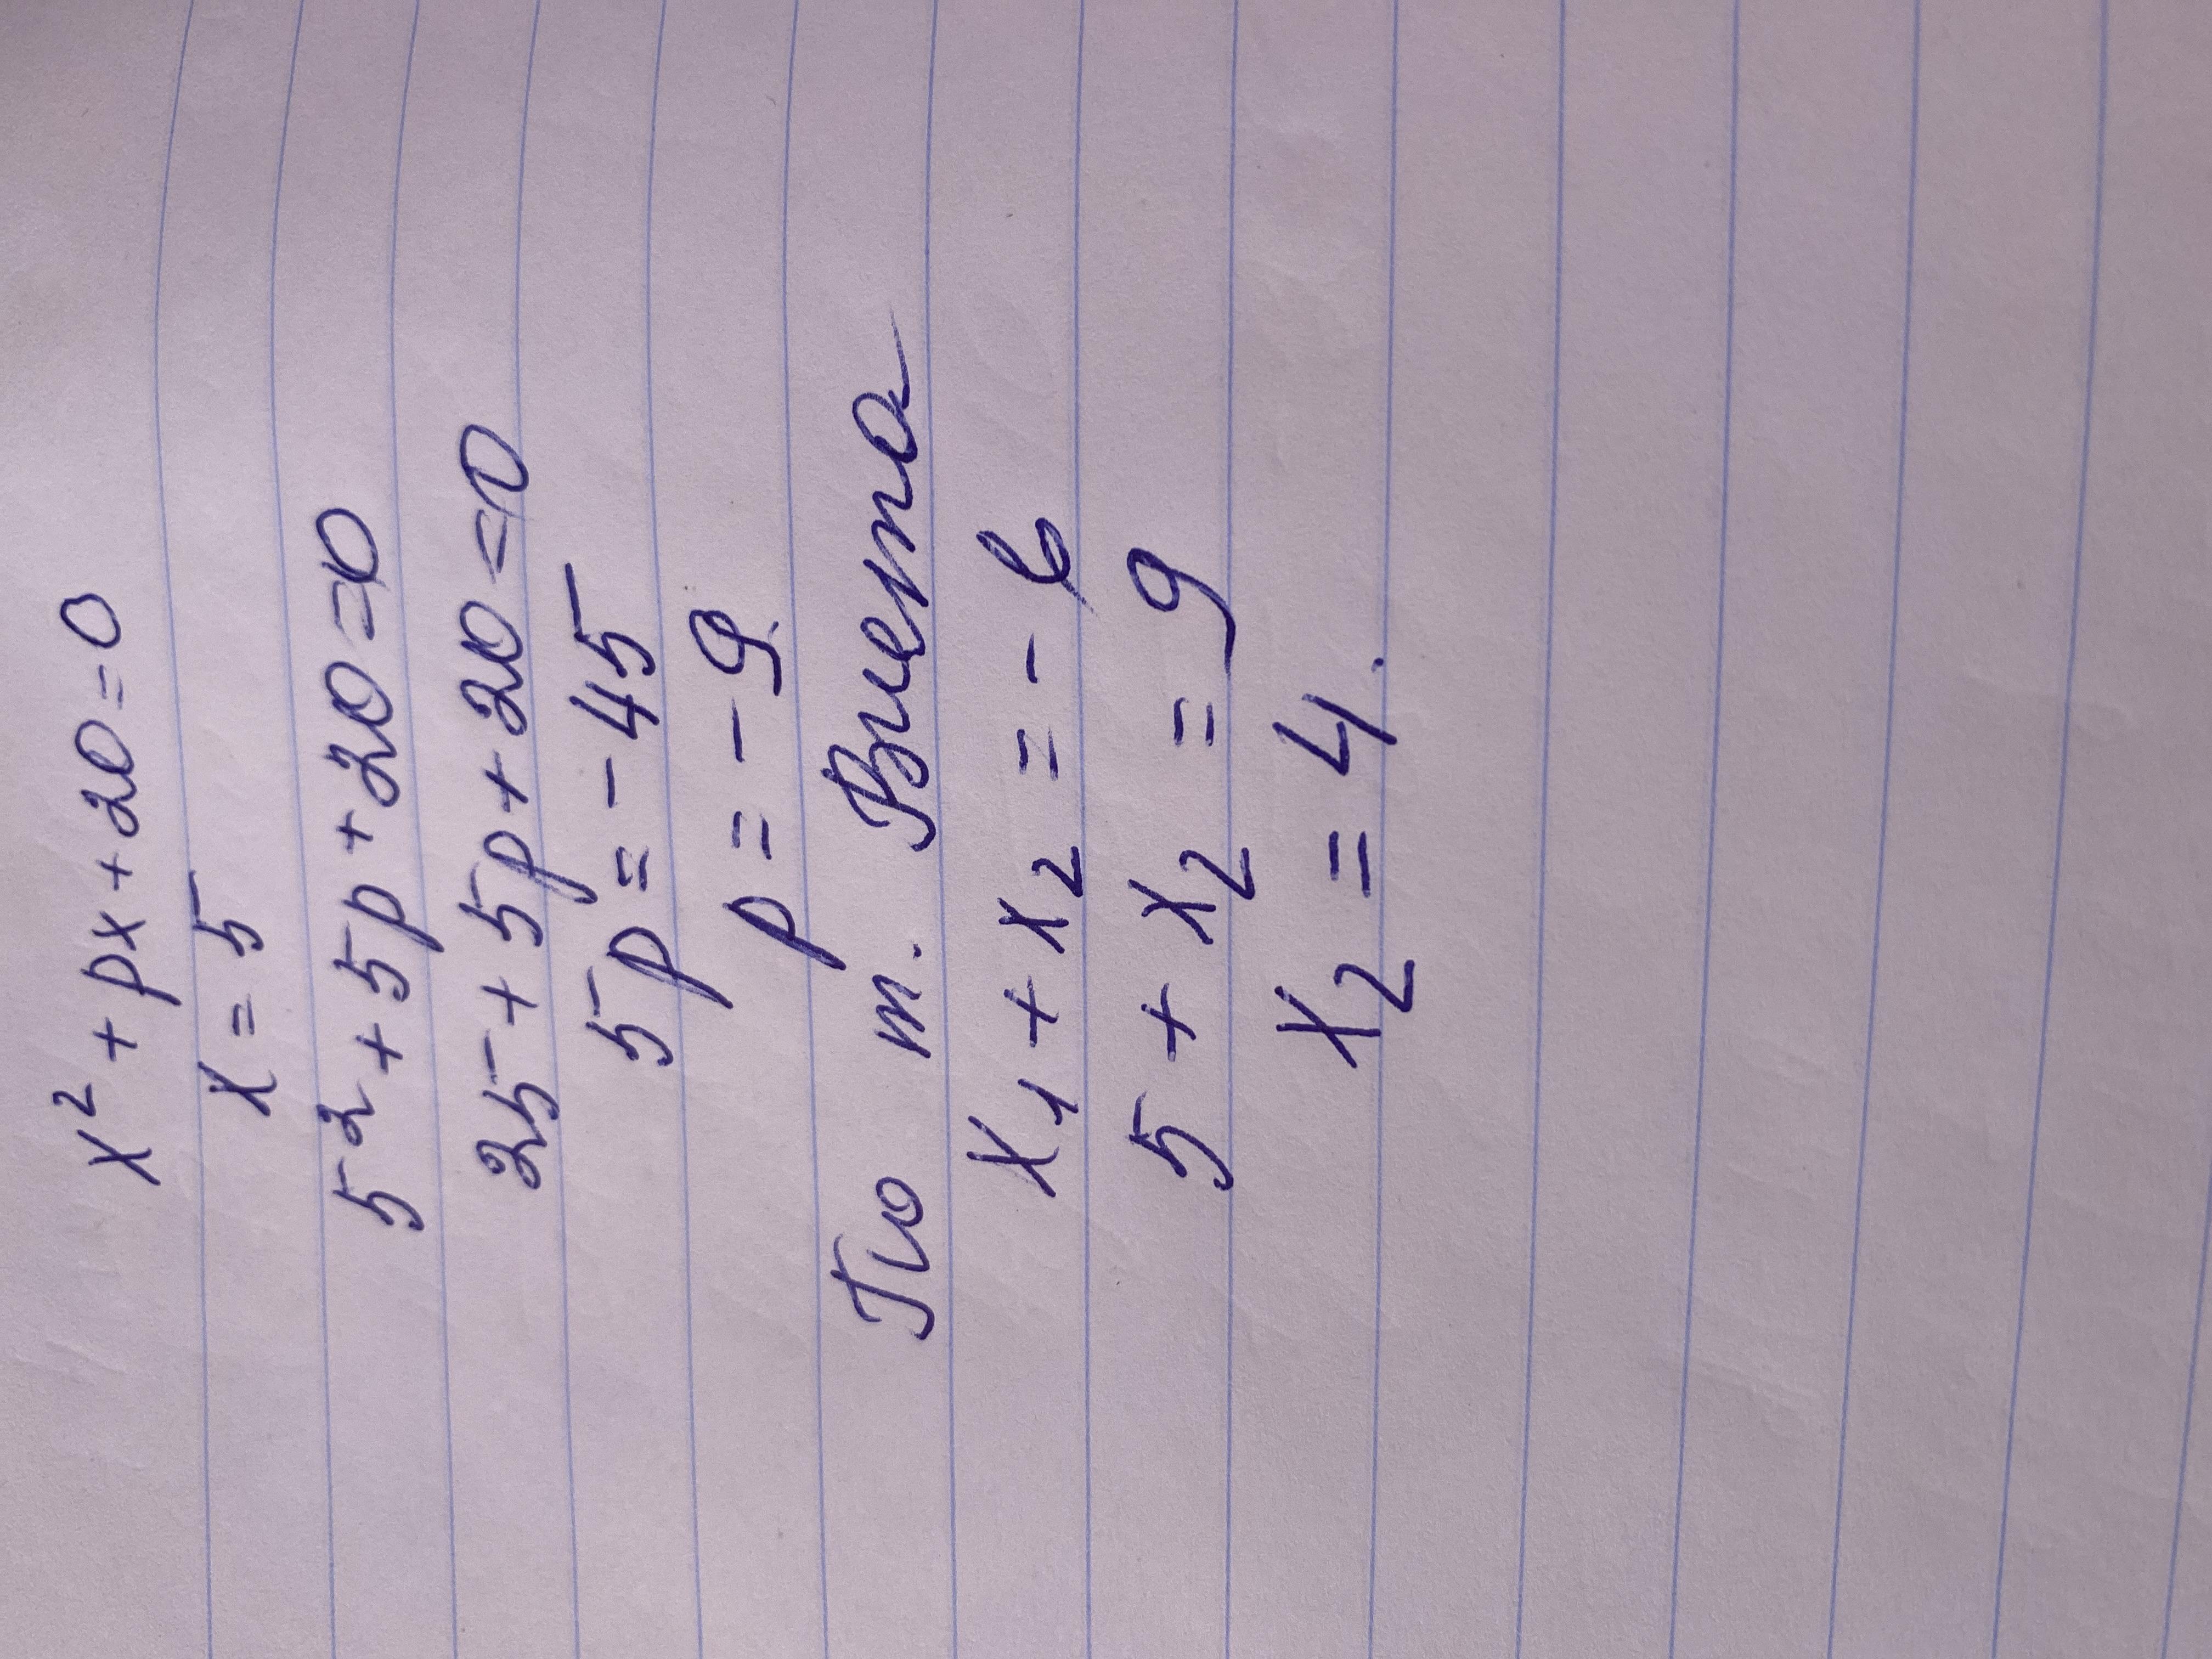 x² + px + 20 = 0
x = 5
5² + 5p + 20 = 0
25 + 5p + 20 = 0
5p = -45
p = -9
По т. Виета
x₁ + x₂ = -b
5 + x₂ = 9
x₂ = 4.